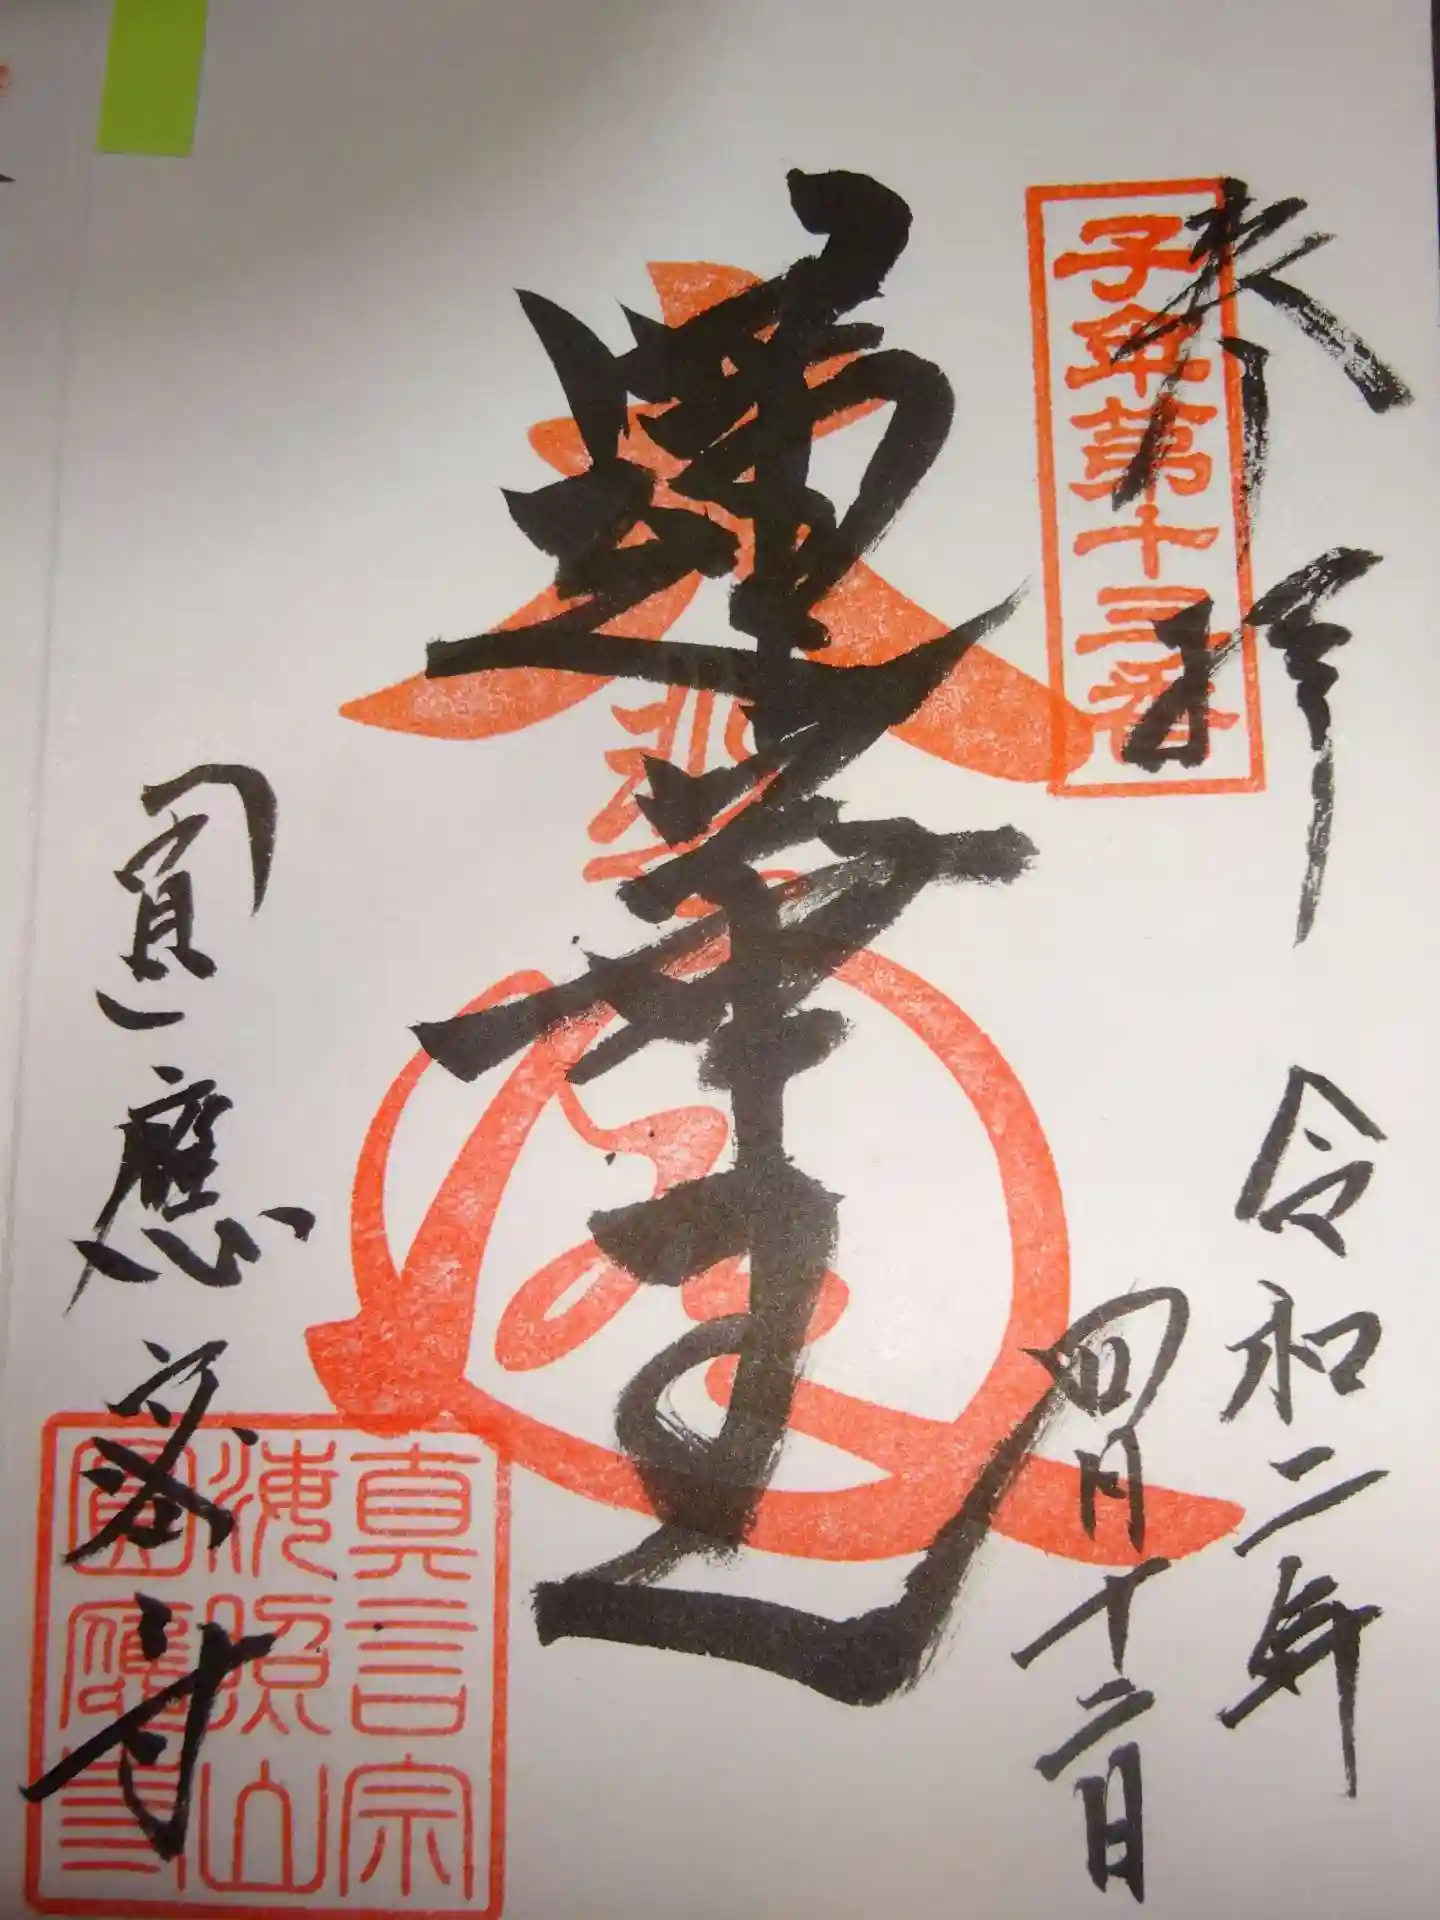 奉拝
子年第十三番
令和二年
四月十二日
蓮華
圓應密寺
真言宗
海照山
圓應寺